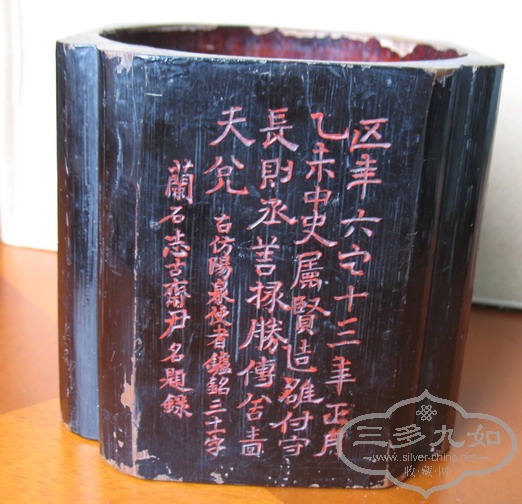 五年六安十三年正月
乙未中史属賢造雒付守
長則丞善掾勝傳舍嗇
夫兌
古仿陽泉使者鑪銘三十字
蘭石志古齋尹名題錄
三多九如
www.silver-china.net
收·藏·网